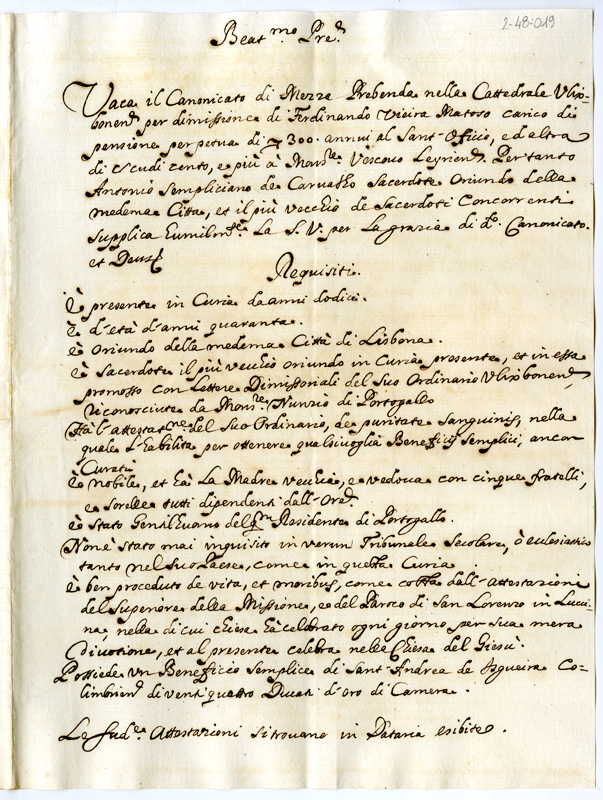 2-48-019
Beat.mo Pre.
Vaca il Canonicato di Mezza Prebenda nella Cattedrale Ulix-
bonen. per dimissione di Ferdinando Vieira Matoso carico di
pensione perpetua di 300. annui al Sant-Officio, ed altra
di scudi cento, e più à Mons.re Vescovo Leyrien. Per tanto
Antonio Sempliciano de Carvalho Sacerdote Oriundo della
medema Citta, et il più vecchio de Sacerdoti Concorrenti
supplica Eumilm.te La S. V. per La grazia di d.o Canonicato.
et Deus
Requisiti.
È presente in Curia da anni dodici.
È d'età d'anni quaranta.
È Oriundo della medema Città di Lisbona.
È Sacerdote il più vecchio oriundo in Curia presente, et in essa
promosso con Lettere Dimissoriali del Suo Ordinario Ulixbonen,
riconosciute da Mons.re Nunzio di Portogallo
Hà l'attestat.ne del Suo Ordinario, de puritate Sanguinis, nella
quale L'Eabilita per ottenere qualsivoglia Beneficij Semplici, ancor
Curati
È nobile, et Eà La Madre vecchia, e vedova con cinque fratelli,
e sorelle tutti dipendenti dall-Ore.
È stato GentilEuomo del qm Residente di Portogallo.
Non è stato mai inquisito in verun Tribunale Secolare, ò eclesiastico
tanto nel suo Paese, come in questa Curia.
È ben proceduto de vita, et moribus, come costa dall-attestazioni
del Superiore della Missione, e del Paroco di San Lorenzo in Luci-
na, nella di cui chiesa Eà celebrato ogni giorno per sua mera
divotione, et al presente celebra nella Chiesa del Giesù.
Possiede un Beneficio Semplice di Sant-Andrea de Esgueira Co-
limbrien. di venti quattro Ducati d'oro di Camera.
Le Sud.e Attestazioni si trovano in Dataria esibite.